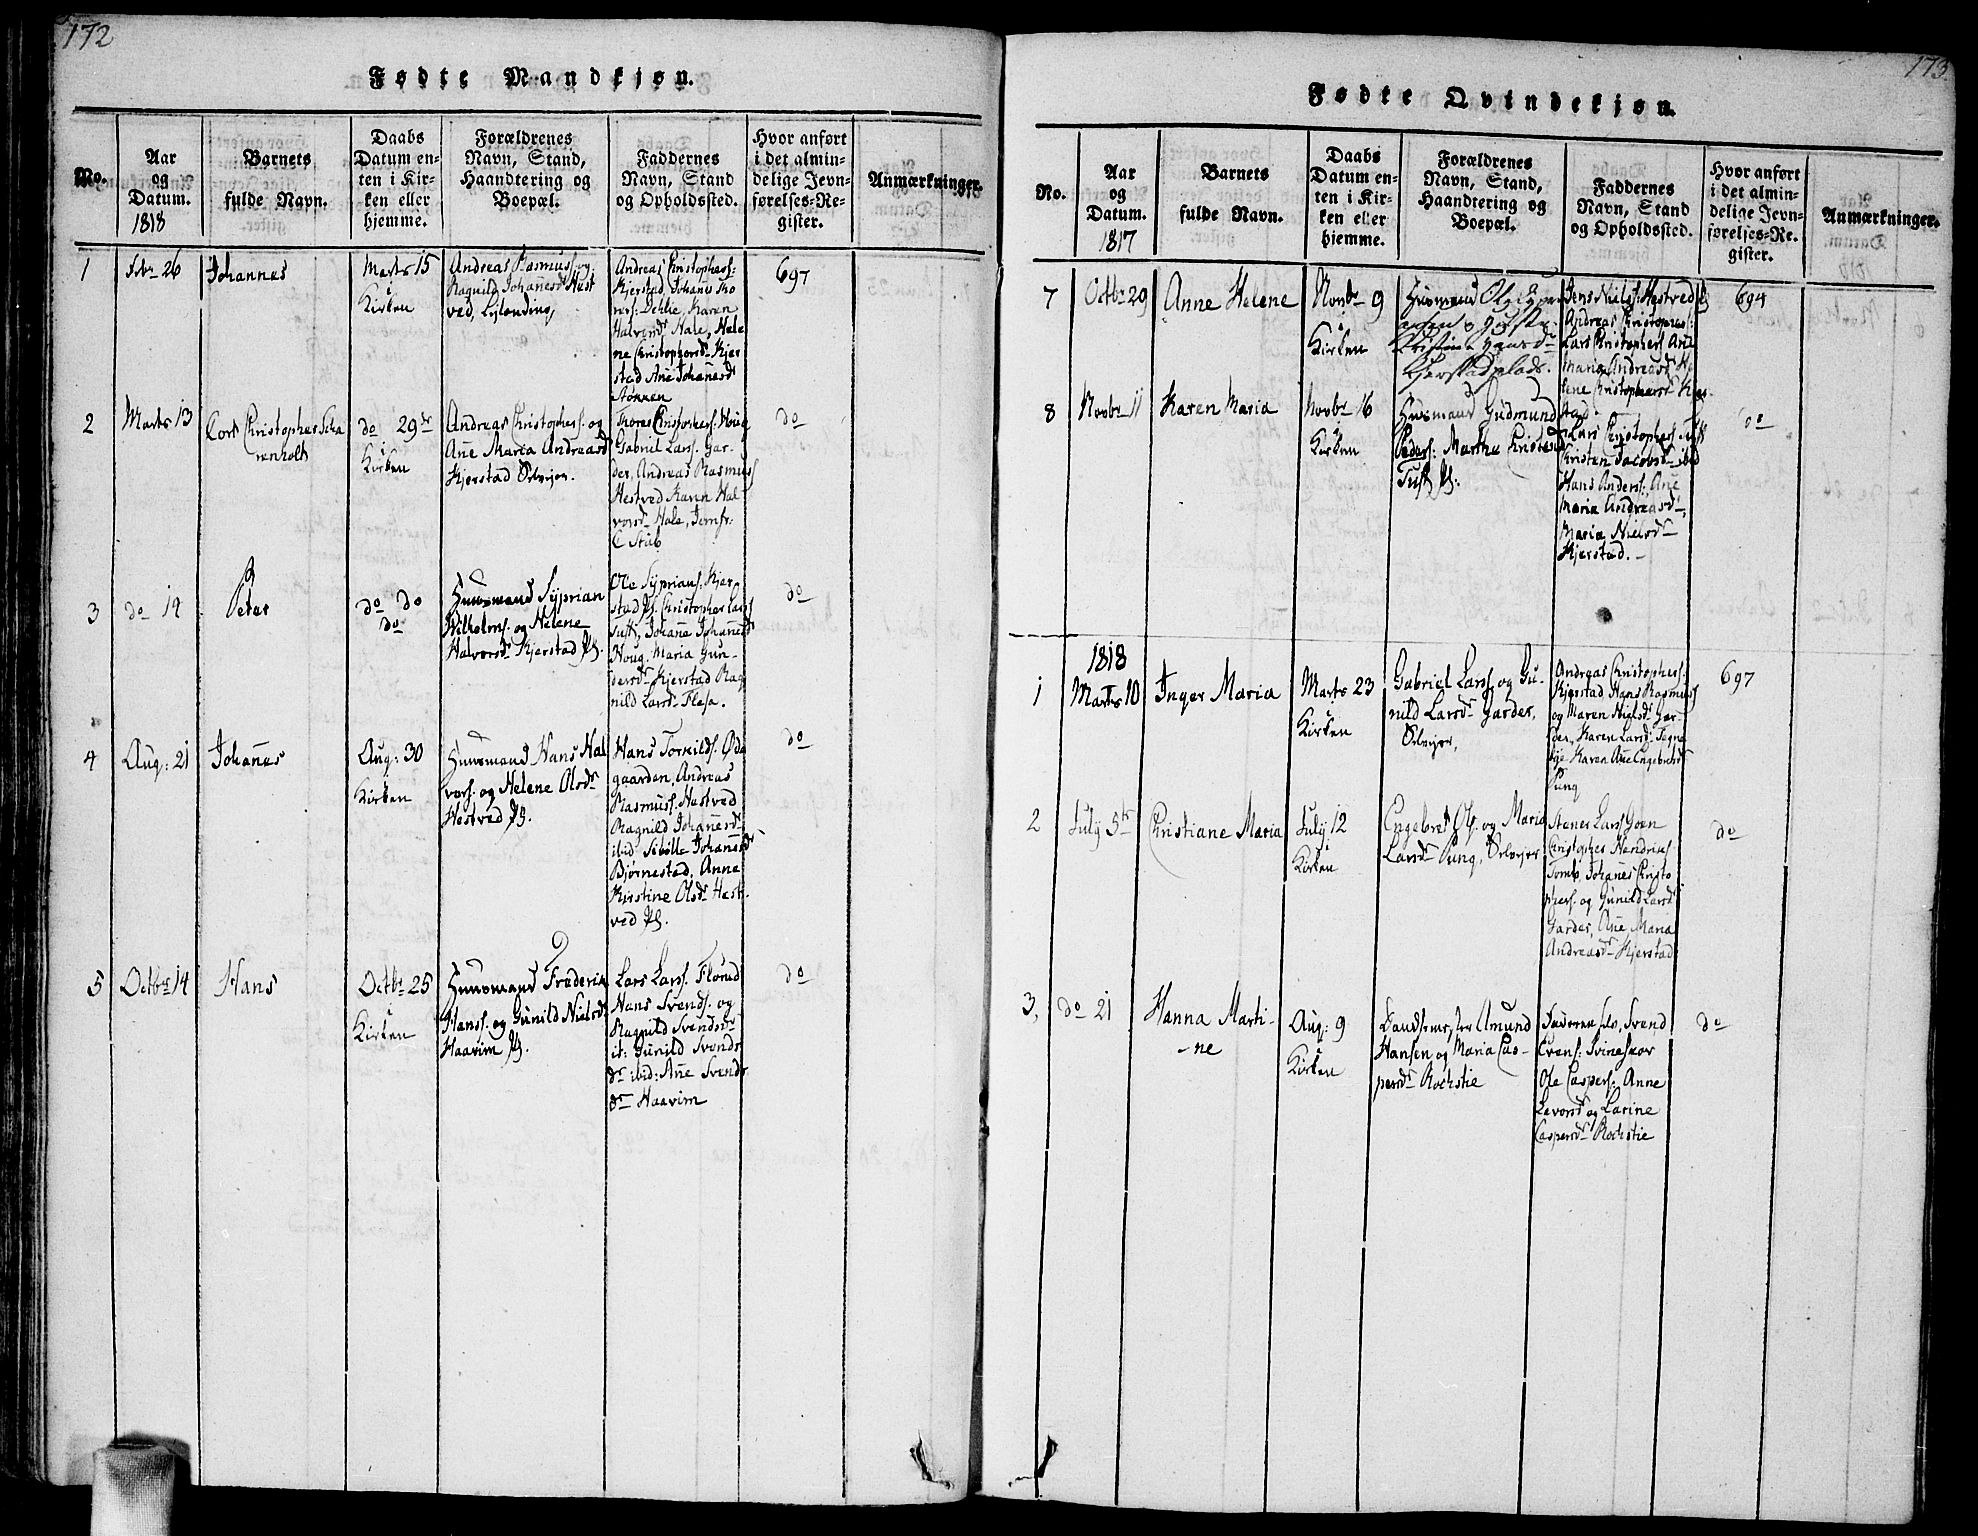 172
Fødte Mandkjøn.
No.
Aar
og
Datum.
1818
Barnets
fulde Navn.
Daabs
Datum en-
ten i Kir-
ken eller
hjemme.
Forældrenes
Navn, Stand,
Haandtering og
Boepæl.
Faddernes
Navn, Stand
og Opholdssted.
Hvor anført
i det almin-
delige Jevn-
førelses-Re-
gister.
Anmærkninger.
1
Febr 26
Johannes
Marts 15
i
Kirken
Andreas Rasmuss. og
Ragnild Johanesdr Hest
ved,
Andreas Christophers:
Kjerstad, Johanes
Dehlie, Karen
Halvorsdr Hale, Hele
ne Christophersdr Kjer
stad Ane Johanesdr
697
2
Marts 13
Cort Christopher Scha
renholt
do 29de
Kirken
Andreas Christophers. og
Ane Maria Andreasdr
Kjerstad Selvejer.
Thores Christophers. Houg
Gabriel Lars. Gar-
der, Andreas Rasmuss
Hestved Karen Hal-
vorsdr Hale, Jomfr:
C Stab
do
3
do 14
Peter
do do
do
Huusmand Syprian
Wilhelms. og Helene
Halvorsdr Kjerstad Pl.
Ole Syprians. Kjer-
stad Pl. Christopher Lars
Tuft, Johane Johanesdr
Houg. Maria Gun-
dersdr Kjerstad Rag
nild Larsdr Flesa.
do
4
Aug: 21
Johanes
Aug: 30
Kirken
Huusmand Hans Hal
vors. og Helene Olsdr
Hestved Pl.
Hans Torkilds. Øde
gaarden, Andreas
Rasmuss. Hestved
Ragnild Johanesdr
ibid Sibille Johanesdr
Bjørnestad, Anne
Kirstine Olsdr Hest-
ved Pl.
do
5
Octbr 14
Hans
Octbr 25
i
Kirken
Huusmand Frederik
Hans. og Gunild Nielsdr
Haavim Pl.
Lars Lars. Florud
Hans Svends. og
Ragnild Svendsdr
it: Gunild Svends
dr ibid: Ane Svends
dr Haavim
do
173
Fødte Qvindekjøn.
No.
Aar
og
Datum.
1817
Barnets
fulde Navn.
Daabs
Datum en-
ten i Kir-
ken eller
hjemme.
Forældrenes
Navn, Stand,
Haandtering og
Boepæl.
Faddernes
Navn, Stand
og Opholdssted.
Hvor anført
i det almin-
delige Jevn-
førelses-Re-
gister.
Anmærkninger.
7
Octbr 29
Anne Helene
Novbr 9
i
Kirken
Huusmand Ole
Kjerstadplads.
Jens Niels. Hestved
Andreas Christophers:
Lars Christophers Ane
Maria Andreasdr He
lene Christophersdr Kjer
stad
694
8
Novbr 11
Karen Maria
Novbr 16
i
Kirken
Huusmand Gudmund
Peders: Marthe Christensdr
Tuft Pl.
Lars Christophers Tuft
Kirsten Jacobsdr ibid
Hans Anders:, Ane
Maria Andreasdr,
Maria Nielsdr
Kjerstad.
do
1818
1
Marts 10
Inger Maria
Marts 23
i
Kirken
Gabriel Lars. og Gu-
nild Larsdr Garder,
Selvejer,
Andreas Christophers.
Kjerstad Hans Rasmuss
og Maren Nielsdr Gar-
der, Karen Larsdr
Karen Ane Engebretsdr
Pung
697
2
July 5te
Christiane Maria
July 12
i
Kirken
Engebret Ols. og Maria
Larsdr Pung, Selvejer
Stener Lars Goen
Christopher Hendriks
Tomb, Johanes Christo
phers. og Gunild Larsdr
Garder, Ane Maria
Andreasdr Kjerstad
do
3,
do 21
Hanna Marti-
-ne
Aug: 9
i
Kirken
Amund
Hansen og Maria Cas-
persdr Rochstie
Faderen selv, Svend
Evens: Svineskov
Ole Caspers. Anne
Levorsdr og Larine
Caspersdr Rochstie
do